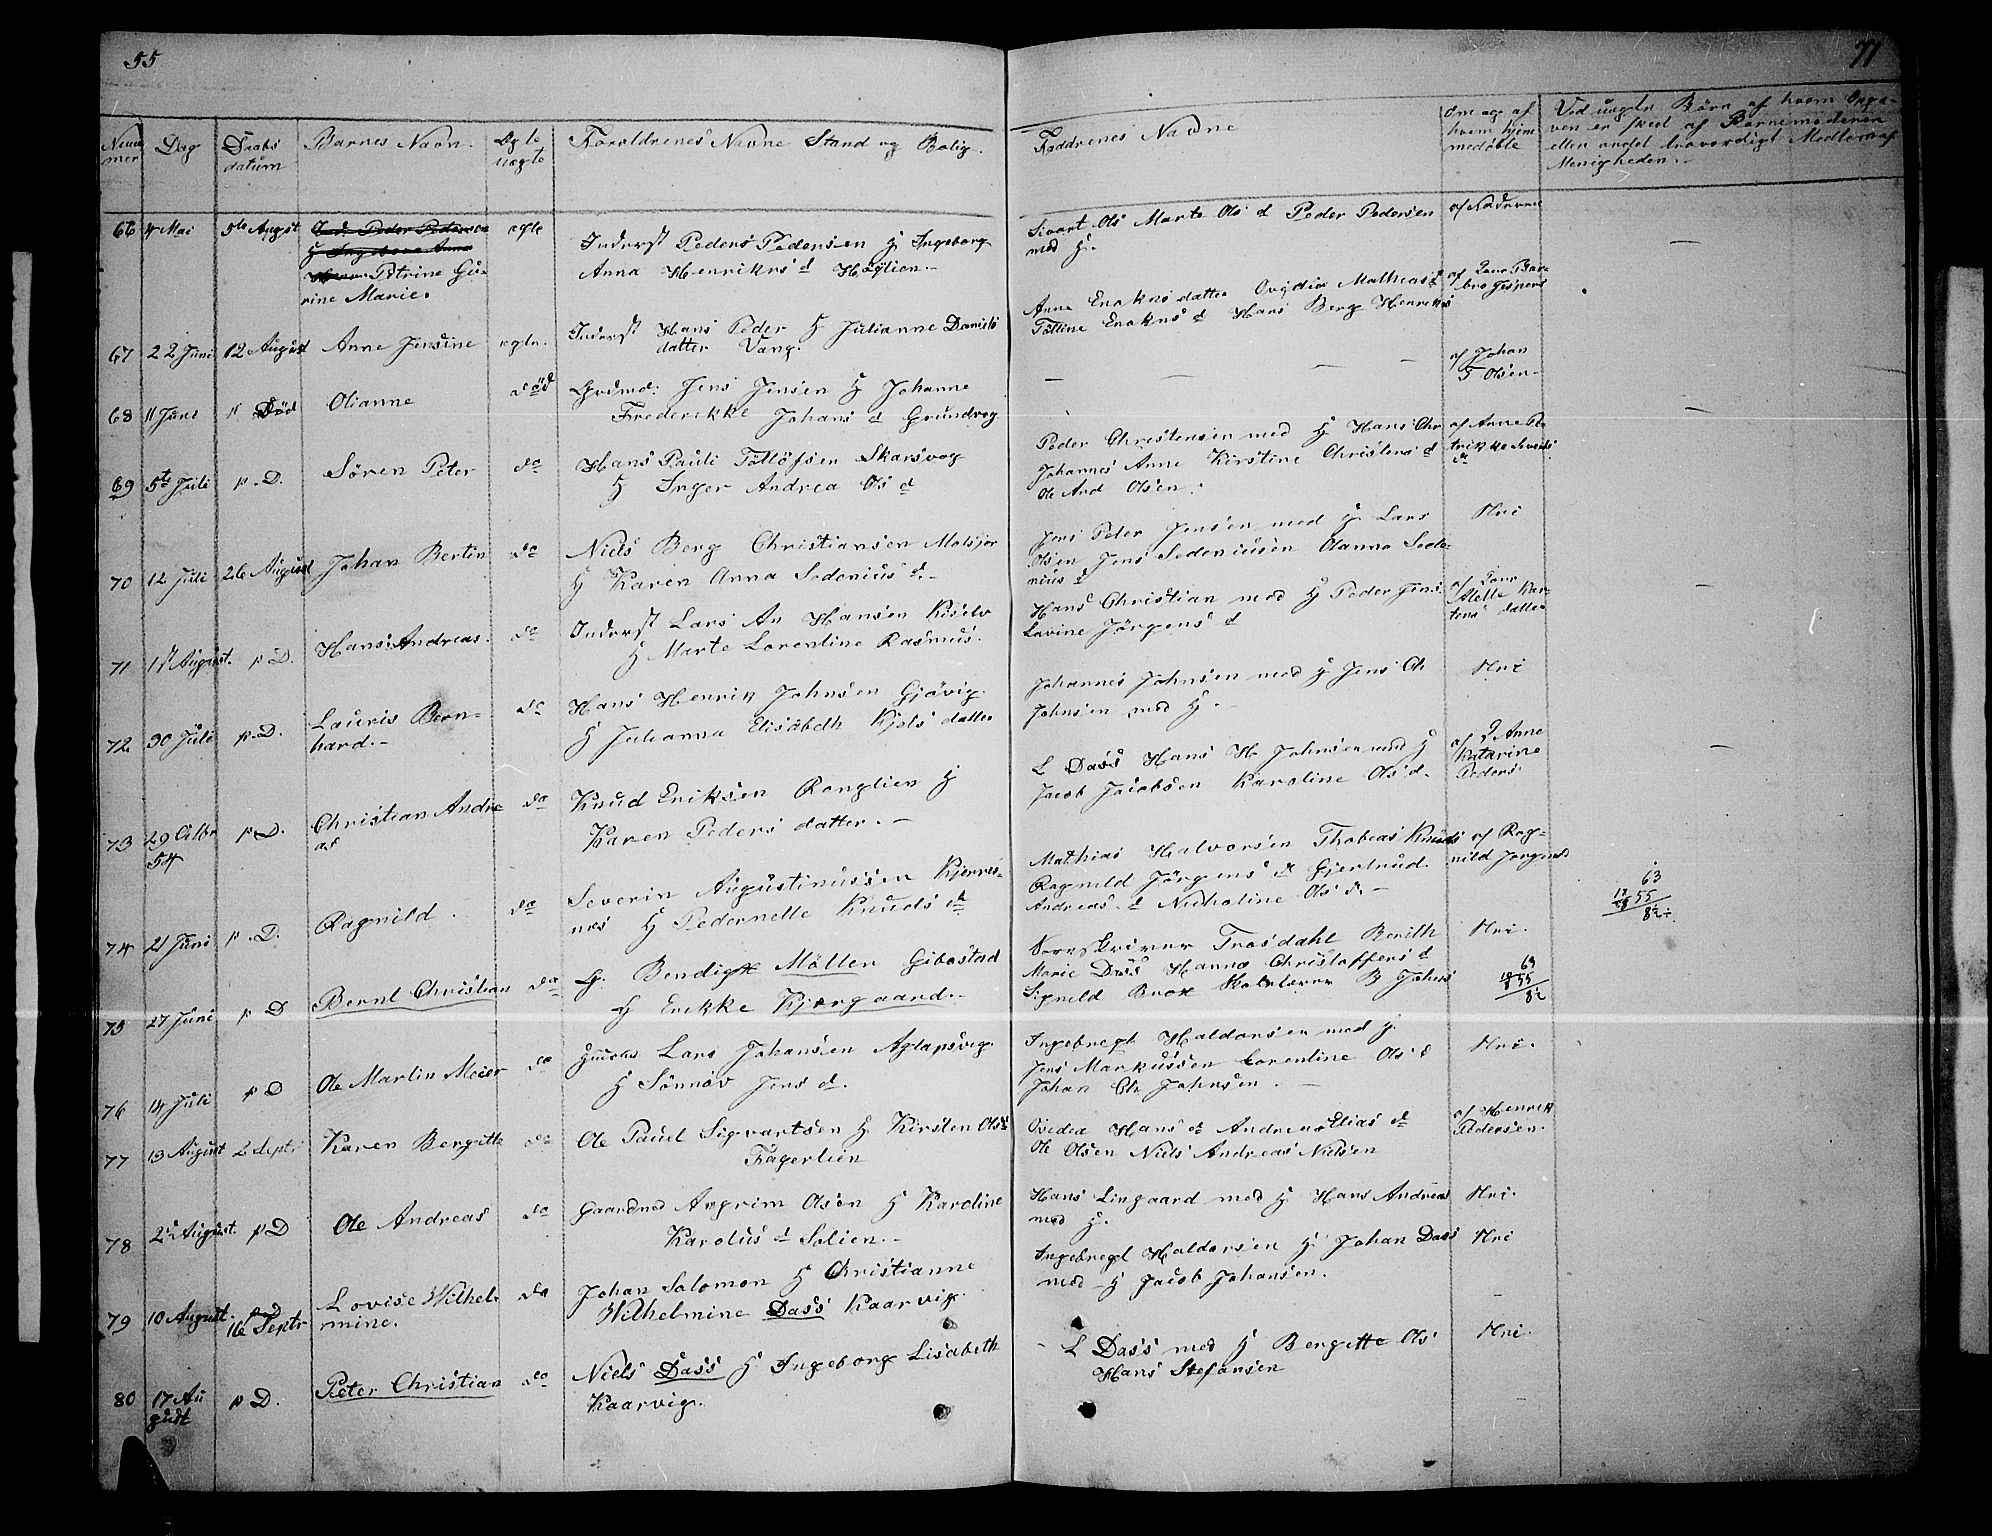 55
77
Num
mer
Dag
Daabs
datum
Barnes Navn.
Ægte
uægte
Forældrenes Navne Stand og Bolig.
Faddrenes Navne
Om og af
hvem hjem
medøbte
Ved uægte Børn af hvem Opga-
ven er skeet af Barnemoderen
eller andet troværdigt Medlem af
Menigheden.-
66
4 Mai
5te Augst
Ind. Peder Pedersen
H Ingeborg Anna
Petrine Gu-
rine Marie.
ægte
Inderst Peders Pedersen H Ingeborg
Anna Henriks d Høglien.-
Sivart Ols Marte Ols d Peder Pedersen
med H.
af Faderen
67
22 Juni
12 August
Anne Jensine
ægte.
Inderst Hans Peder H Julianne Daniels
datter Vang.
Anne Enoksdatter Ovidia Mathias d
Tolline Enoks d Hans Berg Henriks
af Jans Bar-
bro Jespers
68
11 Juni
" Død
Olianne
død
Grdmd. Jens Jensen H Johanne
Frederikke Johans d Grundvog
af Johan
Olsen-
69
5te Juli
p. D.
Søren Peter
do
Hans Pauli Tollofsen Skarsvog
H Inger Andrea Ols d
Peder Christensen med H Hans Chr
Johannes Anne Kirstine Christens d
Ole And Olsen.
af Anne Pe
trikke Siverts
d
70
12 Juli
26 August
Johan Bertin
do
Niels Berg Christiansen Molsjor
H Karen Anna Sedenius d.-
Jens Peter Jensen med H Lars
Olsen Jens Sedeniusen Olanna Sede-
nius d
Nei
71
17 August.
p D.
Hans Andreas.
do
Inderst Lars An Hansen Kiselv
H Marte Lorentine Rasmus.
Hans Christian med H Peder Jens
Lavine Jørgens d
af Jans
Mette Mar-
tens datter
72
30 Juli
p. D.
Lauris Bern-
hard.-
do
Hans Henrik Johnsen Gjøvig.
H Julianna Elisabeth Kjels datter
Johannes Johnsen med H Jens Ole
Johnsen med H.-
Nei
73
29 Octbr
54
p D.
Christian Andre
as
do
Knud Eriksen Ronglien H
Karen Peders datter.-
L Dass Hans H Johnsen med H
Jacob Jacobsen Karoline Ols d.
af J Anne
Katarine
Peders.
74
21 Juni
p. D.
Ragnild.
do
Severin Augustinussen Kjerres-
nes H Pedernelle Knuds d
Mathias Halvorsen Thobias Knuds
Ragnild Jørgens d Gjertrud
Andreas d Nicholine Ols d.-
af Rag-
nild Jørgens d
63
18 55
8½
75
27 Juni
p D
Bernt Christian
do
G. Bendigt Möller Gibostad
H Erikke Kjergaard.-
Sorenskriver Trosdahl Berith
Marie Dass Hanna Christoffers d
Signild Brox Kolelærer B Johns
Nei.
63
18 55
8½
76
14 Juli
p D
Ole Martin Meier
do
Huusm Lars Johansen Aglapsvig.
H Sønnøv Jens d.
Ingebregt Haldorsen med H.
Jens Markussen Lorentine Ols d
Johan Chr Johnsen.-
Nei.
77
13 August
2 Septr
Karen Bergitte
do
Ole Paul Sigvartsen H Kirsten Ols d
Fagerlien
Ovedia Hans d Andrea Elias d
Ole Olsen Niels Andreas Nielsen
af Henrik
Pedersen.
78
25 August.
p D
Ole Andreas
do
Gaardmd Argrim Olsen H Karoline
Karolus d Solien.-
Hans Lingaard med H Hans Andreas
med H.
Nei.
79
10 August.
p D
16 Septr
Lovise Wilhel-
mine.
do
Johan Salomon H Christianne
Wilhelmine Dass Kaarvig.
Ingebregt Haldorsen H Johan Dass
med H Jacob Johansen.
Nei
80
17 Au
gust
p D.
Peter Christian
do
Niels Dass H Ingeborg Lisabeth
Kaarvig.
L Dass med H Bergitte Ols
Hans Stefansen
Nei.